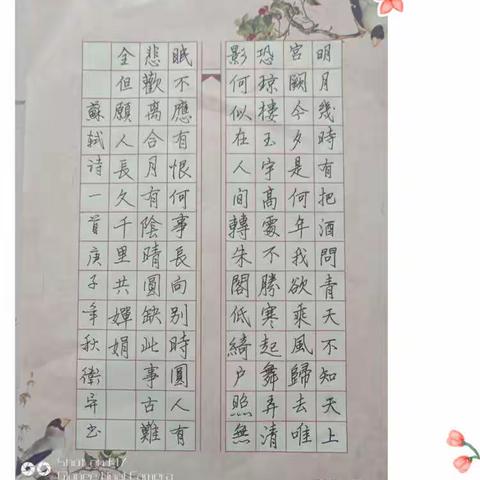 明月幾時有把酒問青天不知天上
宮闕今夕是何年我欲乘風歸去唯
恐琼樓玉宇高處不勝寒起舞弄清
影何似在人間轉朱閣低綺户照無
眠不應有恨何事長向别時圓人有
悲歡离合月有陰晴圓缺此事古難
全但願人長久千里共嬋娟
蘇軾诗一首庚子年秋衛异书